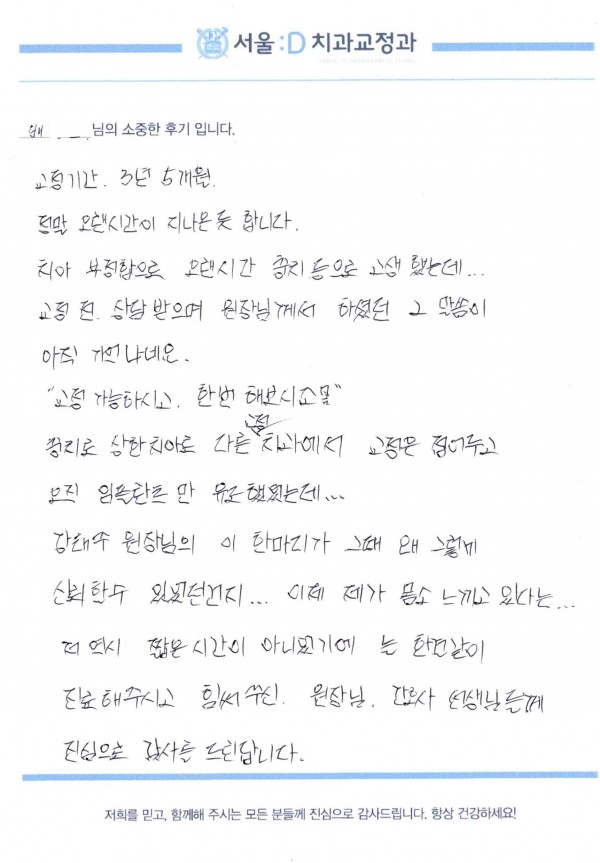 서울:D 치과교정과
배 . _ . 님의 소중한 후기 입니다.
교정기간. 3년 5개월.
정말 오랜시간이 지나온 듯 합니다.
치아 부정합으로 오랜시간 충치 등으로 고생 했는데...
교정 전. 상담 받으며 원장님께서 하셨던 그 말씀이
아직 기억나네요.
"교정 가능하시고. 한번 해보시죠 뭘"
교정
충치로 상한 치아로 다른 치과에서 교정은 접어두고
오직 임플란트 만 유도했었는데...
원장님의 이 한마리가 그때 왜 그렇게
신뢰할수 있었던건지... 이제 제가 몸소 느끼고 있다는...
저 역시 짧은 시간이 아니였기에 늘 한결같이
진료해주시고 힘써주신. 원장님. 간호사 선생님들께
진심으로 감사를 드린답니다.
저희를 믿고, 함께해 주시는 모든 분들께 진심으로 감사드립니다. 항상 건강하세요!